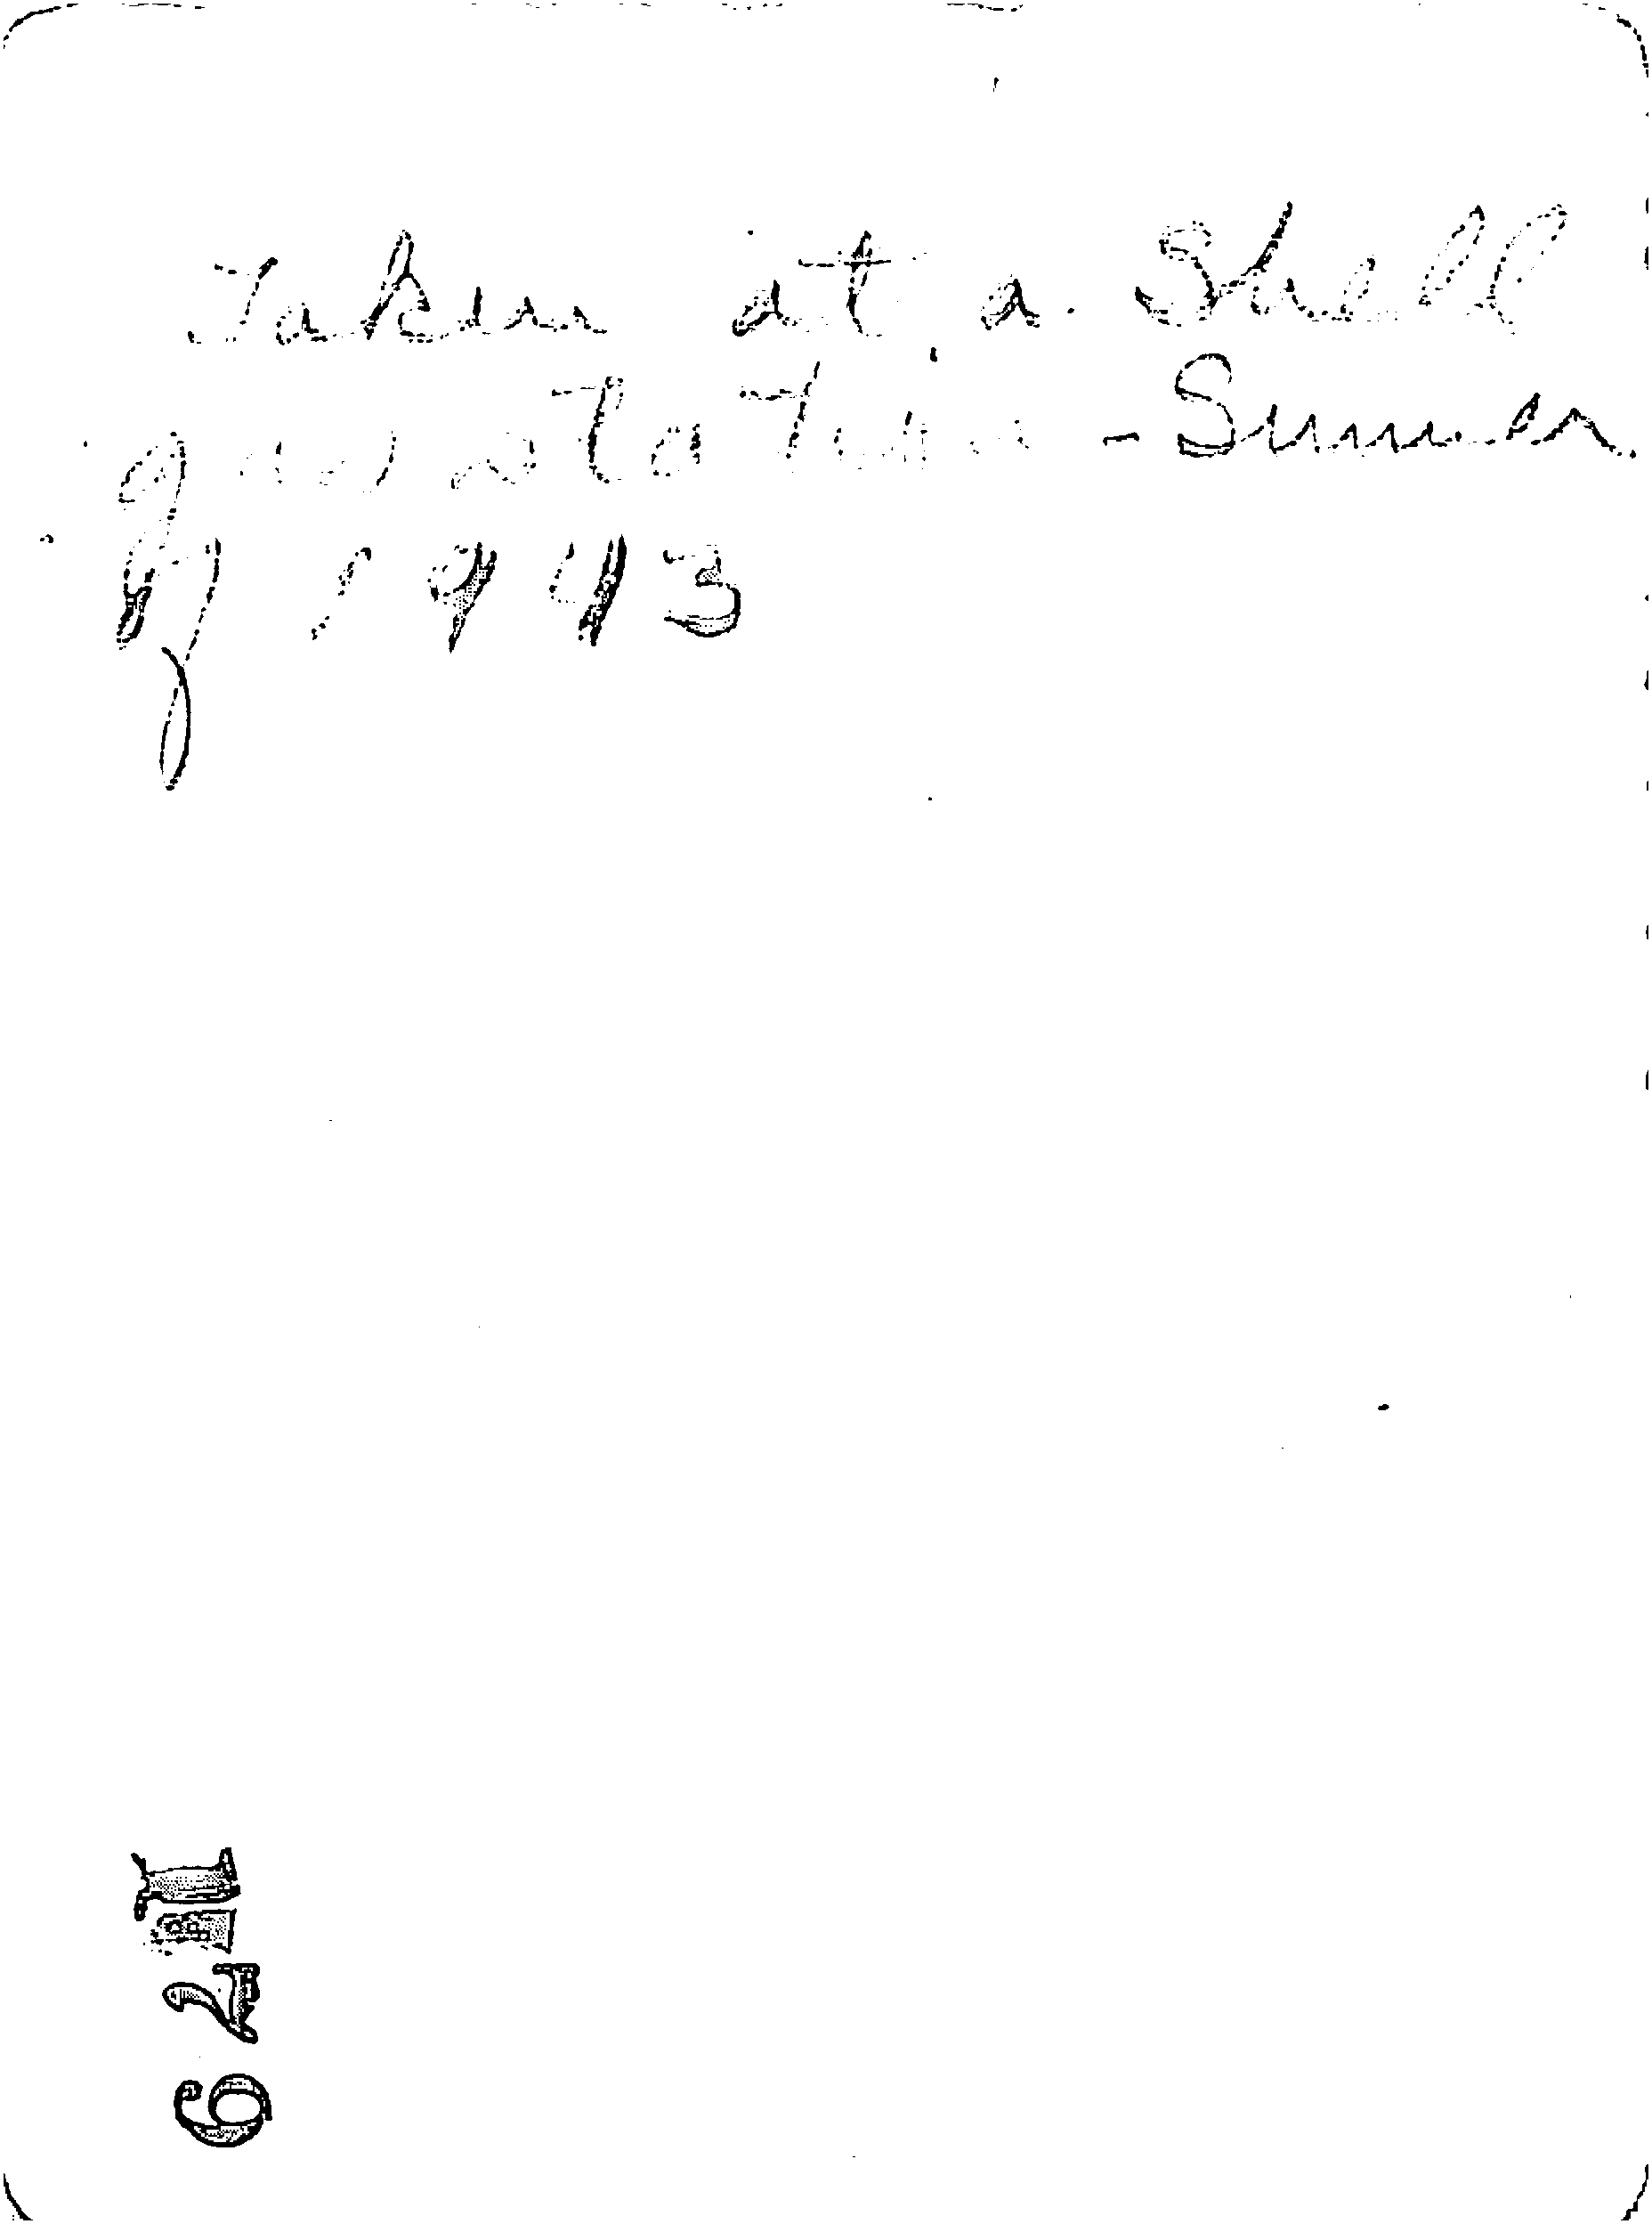 Taken at a Shell
gas station - Summer
of 1943